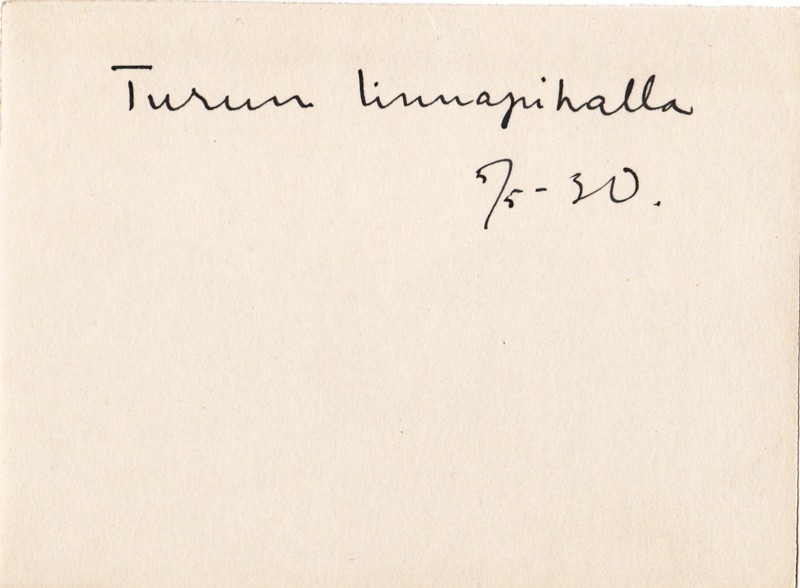 Turun linnapihalla
5/5 - 30.